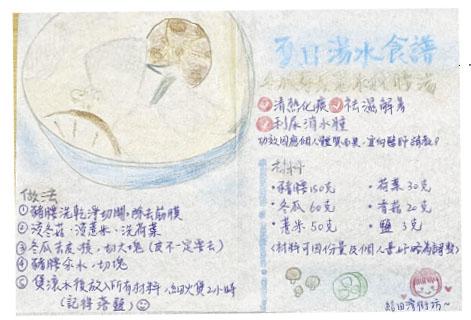 夏日湯水食譜
冬瓜荷葉薏米豬𦟌湯
清熱化痰 祛濕解暑
利尿消水腫
功效因應個人體質而異，宜向醫師諮詢。
材料
・豬𦟌150克
・荷葉30克
・冬瓜60克
・香菇20克
・薏米50克
・鹽 3克
(材料可因份量及個人喜好略為調整)
做法
①豬𦟌洗乾淨切開，除去筋膜
②浸冬菇、浸薏米、洗荷葉
③冬瓜去皮、瓤，切大塊
④豬𦟌汆水，切塊
⑤煲滾水後放入所有材料，細火煲2小時
(記得落鹽)